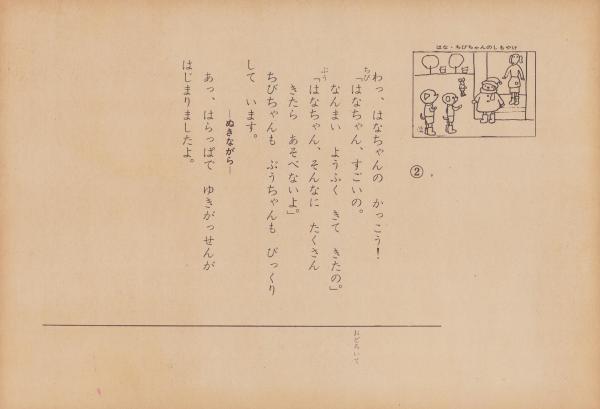 はな・ちびちゃんのしもやけ
②
わっ、はなちゃんの かっこう！
ちび
「はなちゃん、すごいの。
なんまい ようふく きて きたの」。
ぶう
「はなちゃん、そんなに たくさん
きたら あそべないよ」。
ちびちゃんも ぶうちゃんも びっくり
して います。
―ぬきながら―
あっ、はらっぱで ゆきがっせんが
はじまりましたよ。
おどろいて